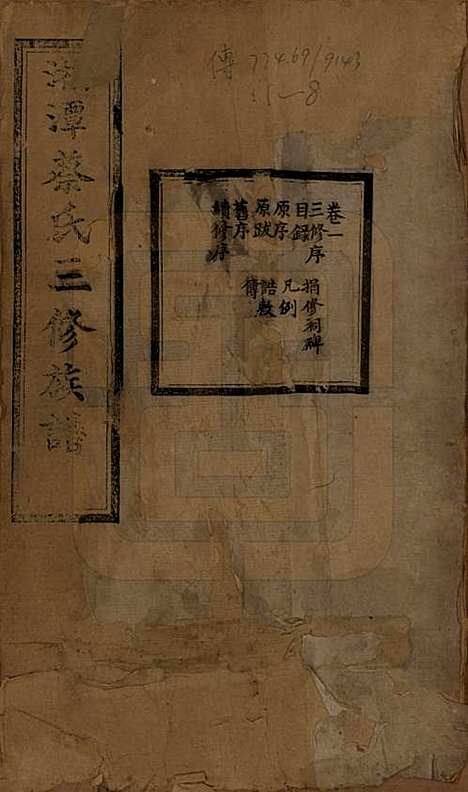 傳 774.69/9143
:1-8
湘潭蔡氏三修族譜
卷一
三修序
目錄
原序
原跋
舊序
續修序
捐修祠碑
凡例
誥敕
傳